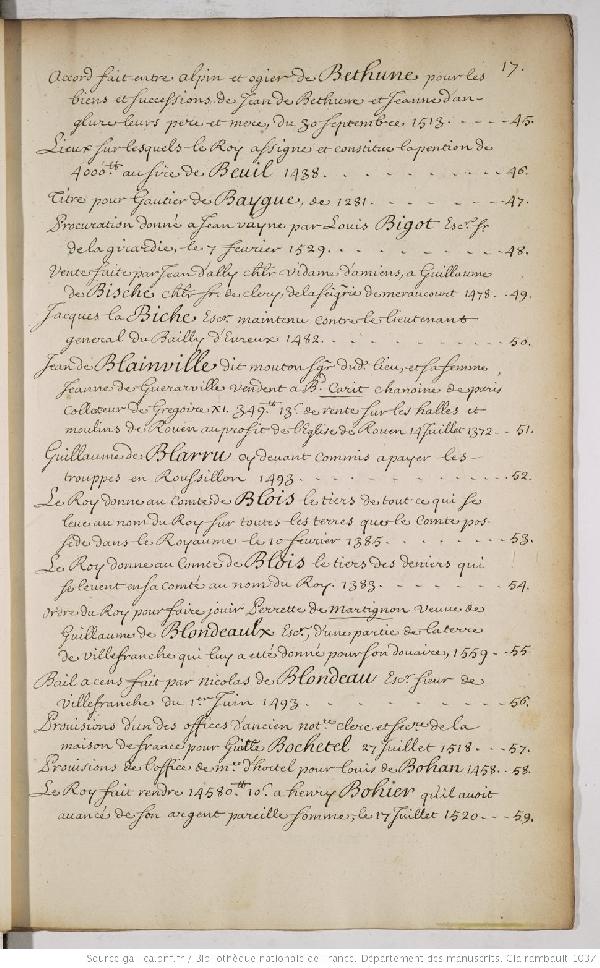 17.
Accord fait entre alpin et ogier de Bethune pour les
biens et successions de Jean de Bethune et Jeanne d'an-
glure leurs pere et mere, du 30 septembre 1513. - - - - 45.
Lieux sur lesquels le Roy assigne et constitue la pention de
4000.tt au sire de Beuil 1438. - - - - - - - - 46.
Titre pour Gautier de Baygue, de 1281. - - - - - - 47.
Procuration donné a Jean vayne par Louis Bigot Esc.r sr
de la girardie, le 7 fevrier 1529. - - - - - - - - 48.
Vente faite par Jean d'ally chlr vidame d'amiens, a Guillaume
de Bische chlr sr. de clery, de la seigrie de meraucourt 1478. - 49.
Jacques la Biche Escr. maintenu contre le lieutenant
general du Bailly d'Evreux 1482. - - - - - - - - 50.
Jean de Blainville dit mouton sgr dud. lieu, et sa femme
Jeanne de Guerarville vendent a Bd. Carit chanoine de paris
Collecteur de Gregoire XI. 349.tt 13s. de rente sur les halles et
moulins de Rouen au profit de l'Eglise de Rouen 14 Juillet 1372 - - 51.
Guillaume de Blarru cy devant commis a payer les
trouppes en Roussillon 1493. - - - - - - - - 52.
Le Roy donne au Comte de Blois le tiers de tout ce qui se
leve au nom du Roy sur toutes les terres que le Comte pos-
sede dans le Royaume le 10 fevrier 1385. - - - - - - 53.
Le Roy donne au Comte de Blois le tiers des deniers qui
se levent en sa Comté au nom du Roy. 1383. - - - - - - 54.
ordre du Roy pour faire jouir Perrette de Martignon veuve de
Guillaume de Blondeaulx Escr, d'une partie de la terre
de villefranche qui luy a eté donné pour son douaire, 1559 - - 55.
Bail a cens fait par nicolas de Blondeau Escr sieur de
Villefranche du 1.er Juin 1493. - - - - - - - - 56.
Provisions d'un des offices d'ancien not.re clerc et secre de la
maison de france pour Guille Bochetel 27 Juillet 1518. - - - 57.
Provisions de l'office de m.re d'hostel pour louis de Bohan 1458. - 58.
Le Roy fait rendre 14580.tt 10s. a henry Bohier qu'il avoit
avancé de son argent pareille somme, le 17 Juillet 1520. - - - 59.
Source gallica.bnf.fr / Bibliothèque nationale de France. Département des manuscrits. Clairambault 1037